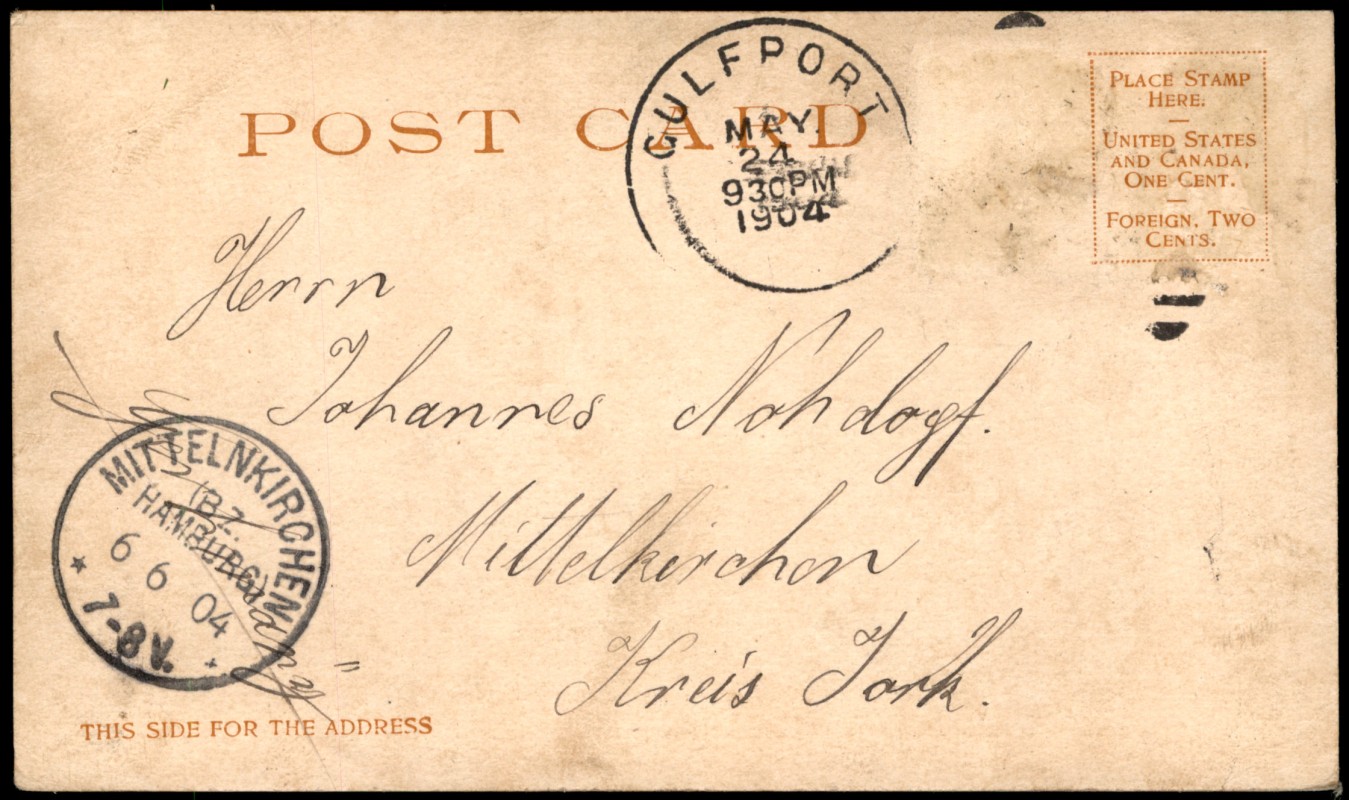 POST CARD
GULFPORT
MAY.
24
930PM
1904
PLACE STAMP
HERE.
—
UNITED STATES
AND CANADA,
ONE CENT.
—
FOREIGN, TWO
CENTS.
Herrn
Johannes
Mittelkirchen
Kreis Jork.
MITTELNKIRCHEN
(BZ.
HAMBURG)
6 6 04
7-8V.
THIS SIDE FOR THE ADDRESS